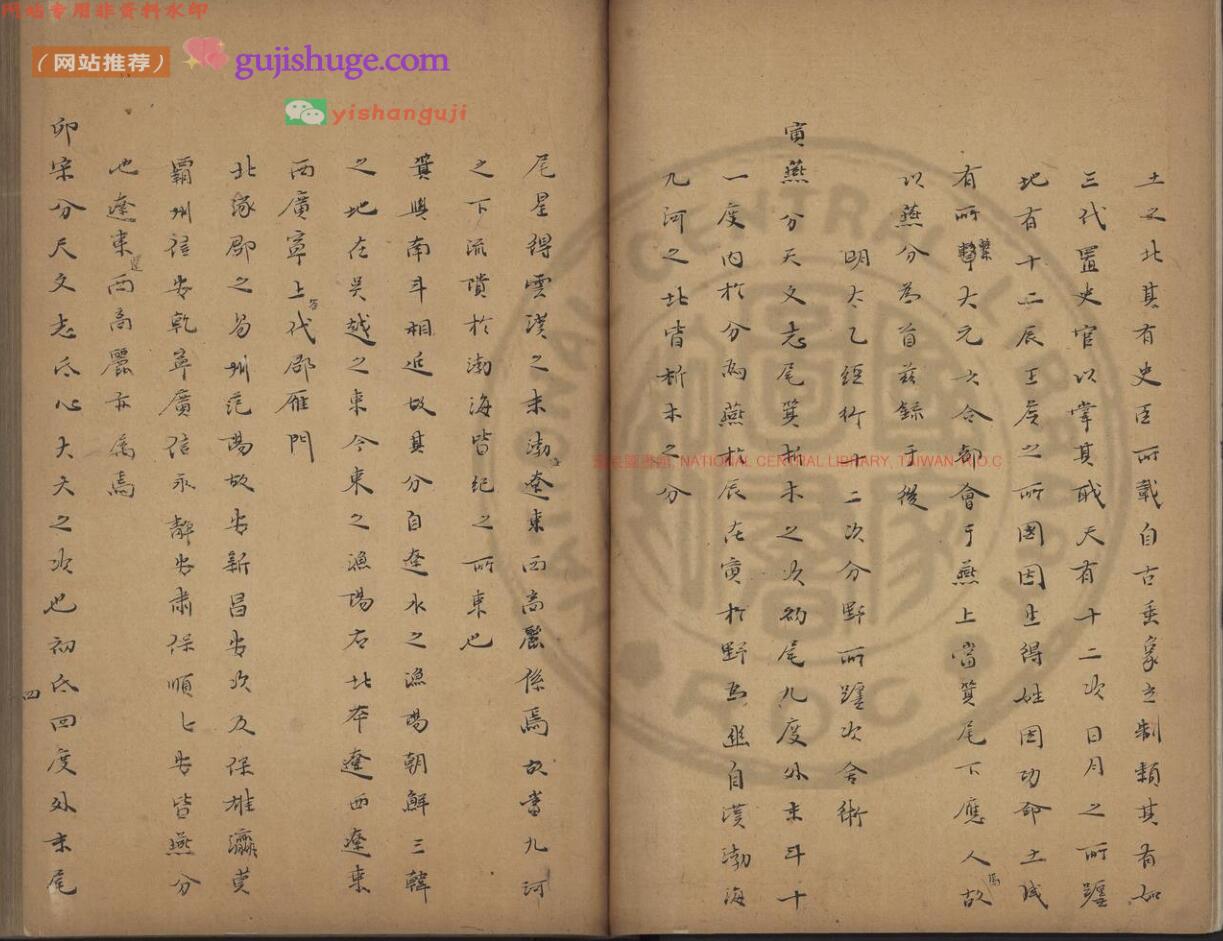 网站专用非资料水印
（网站推荐）
gujishuge.com
yishanguji
土之北其有史臣所載自古垂象之制類其有如
三代置史官以掌其職天有十二次日月之所躔
地有十二辰王侯之所國因生得姓因功命土
有所繫大元六合都會于燕上當箕尾下應人馬故
以燕分為首茲錄于後
明太乙經行十二次分野所躔次舍術
寅燕分天文志尾箕析木之次初尾九度外末斗十
一度內於分為燕於辰在寅於野為幽自漢渤海
九河之北皆析木之分
尾星得雲漢之末渤遼東西高麗係焉故當九河
之下流瀆於渤海皆紀之所東也
箕與南斗相近故其分自遼水之漁陽朝鮮三韓
之地在吳越之東今東之漁陽右北平遼西遼東
西廣寧上谷代郡雁門
北涿郡之易州范陽故安新昌安次及保雄瀛莫
霸州信安乾寧廣信永靜安肅保順七安皆燕分
也遼東西高麗亦屬焉
卯宋分天文志氐心大火之次也初氐四度外末尾
四
國家圖書館, NATIONAL CENTRAL LIBRARY, TAIWAN R.O.C
NATIONAL CENTRAL LIBRARY
R.O.C